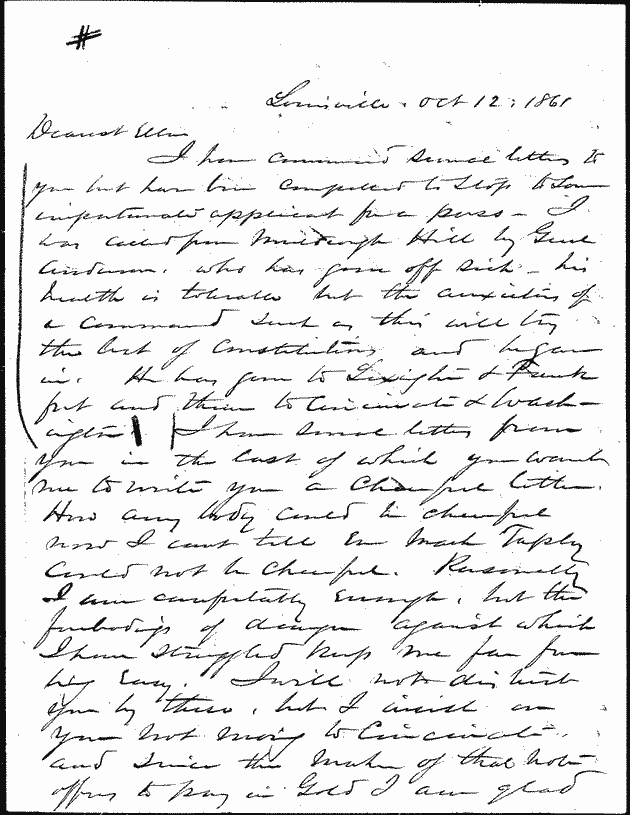 #
Louisville, Oct 12, 1861
Dearest Ellen
I have commenced several letters to
you but have been compelled to stop to some
importunate applicant for a pass - I
was called from Muldraugh Hill by Genl
Anderson, who has gone off sick - his
health is tolerable but the anxieties of
a command such as this will try
the best of constitutions and he gave
in. He has gone to Lexington & Frank
fort and thence to Cincinnati & Wash-
ington I have several letters from
you in the last of which you wanted
me to write you a cheerful letter.
How any body could be cheerful
now I cant tell Even Mark Tapley
could not be cheerful. Personally
I am comfortably enough, but the
forebodings of danger against which
I have struggled keep me far from
being Easy. I will not disturb
you by these, but I insist on
you not moving to Cincinnati.
and since the maker of that note
offers to pay in Gold I am glad